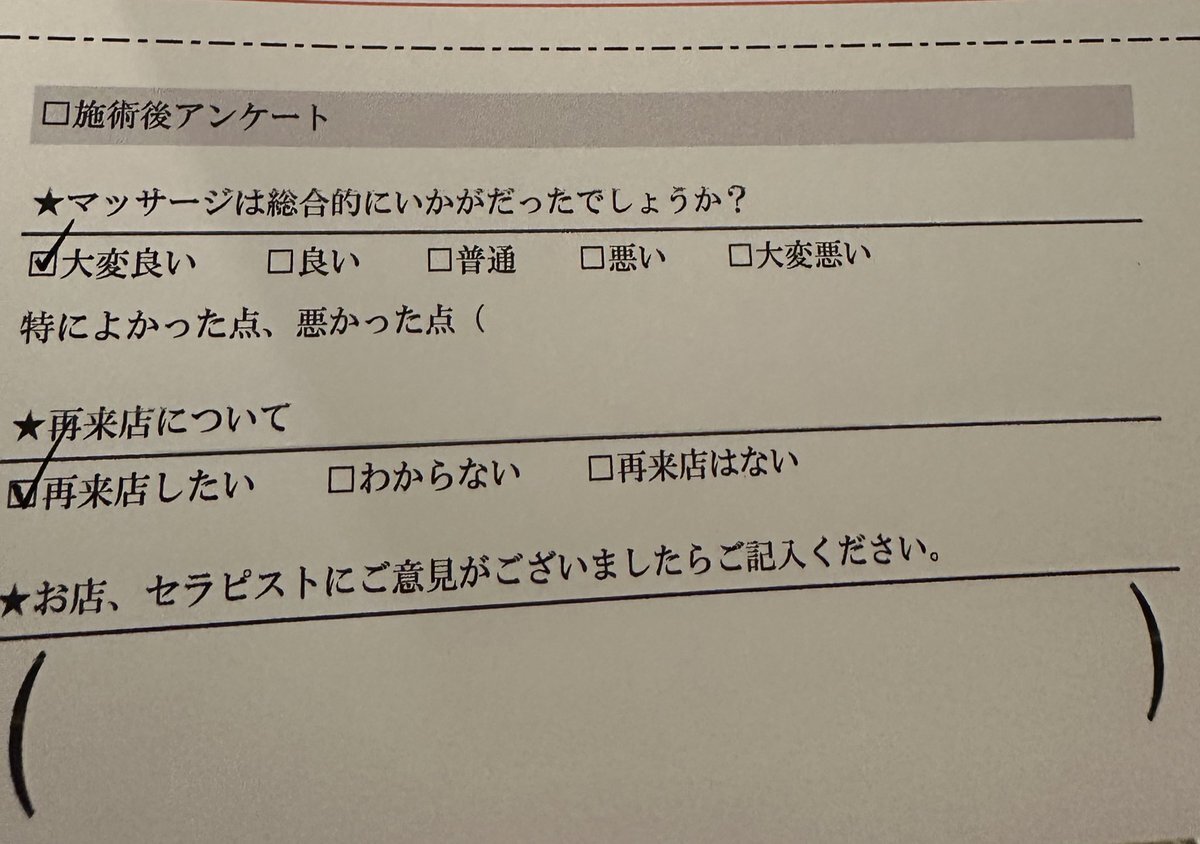 □施術後アンケート
★マッサージは総合的にいかがだったでしょうか？
☑大変良い □良い □普通 □悪い □大変悪い
特によかった点、悪かった点（
★再来店について
☑再来店したい □わからない □再来店はない
★お店、セラピストにご意見がございましたらご記入ください。
（ ）